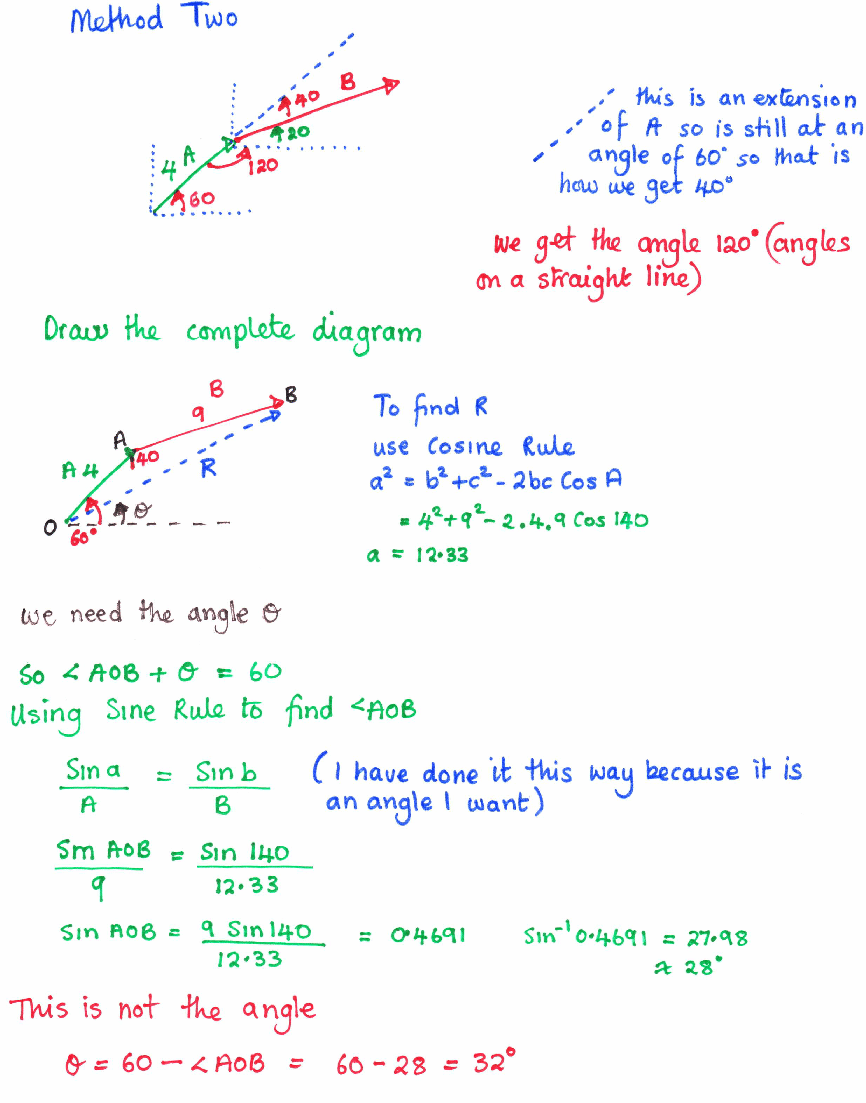 Method Two
B
40
20
4 A
120
60
this is an extension
of A so is still at an
angle of 60° so that is
how we get 40°
We get the angle 120° (angles
on a straight line)
Draw the complete diagram
B
9
B
A
40
A 4
R
O
60°
θ
To find R
use Cosine Rule
a² = b² + c² - 2bc Cos A
= 4² + 9² - 2.4.9 Cos 140
a = 12.33
we need the angle θ
So < AOB + θ = 60
Using Sine Rule to find <AOB
Sin a / A = Sin b / B
(I have done it this way because it is
an angle I want)
Sin AOB / 9 = Sin 140 / 12.33
Sin AOB = 9 Sin 140 / 12.33 = 0.4691
Sin⁻¹ 0.4691 = 27.98
≈ 28°
This is not the angle
θ = 60 - <AOB = 60 - 28 = 32°